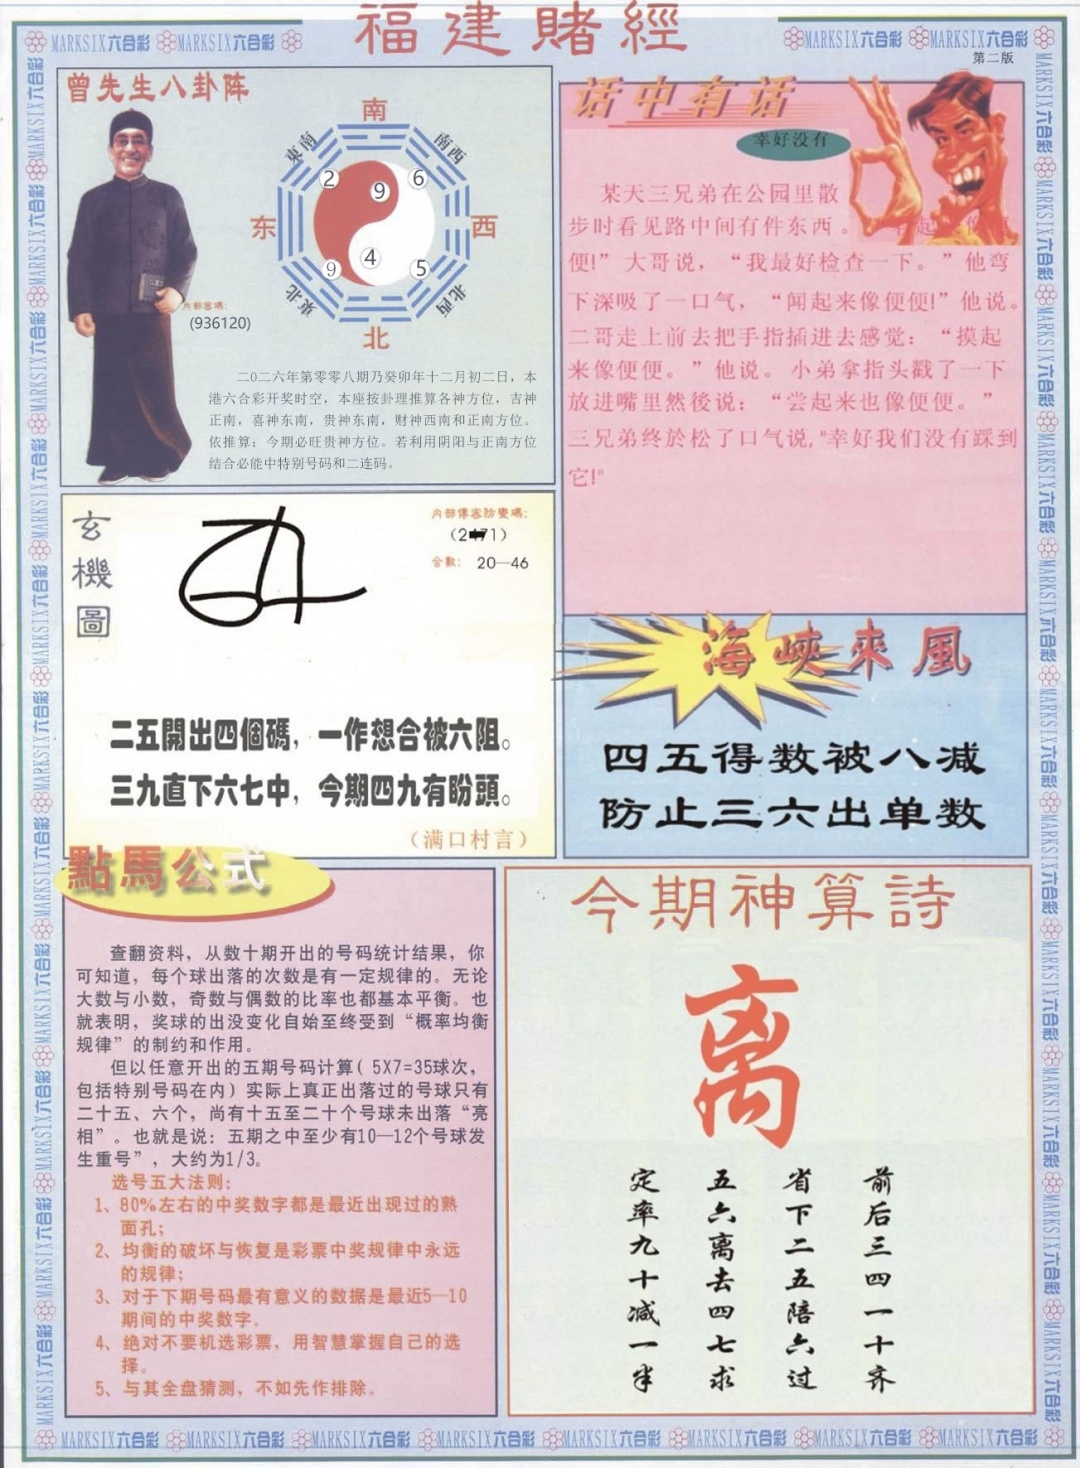 福建賭經
MARKSIX六合彩 MARKSIX六合彩
MARKSIX六合彩 MARKSIX六合彩
第二版
曾先生八卦阵
南
東南
南西
2
9
6
东
西
9
4
5
東北
北西
北
内部密碼:
(936120)
二〇二六年第零零八期乃癸卯年十二月初二日，本
港六合彩开奖时空，本座按卦理推算各神方位，吉神
正南，喜神东南，贵神东南，财神西南和正南方位。
依推算：今期必旺贵神方位。若利用阴阳与正南方位
结合必能中特别号码和二连码。
话中有话
幸好没有
某天三兄弟在公园里散
步时看见路中间有件东西。
便!” 大哥说，“我最好检查一下。”他弯
下深吸了一口气，“闻起来像便便!”他说。
二哥走上前去把手指插进去感觉：“摸起
来像便便。”他说。小弟拿指头戳了一下
放进嘴里然後说：“尝起来也像便便。”
三兄弟终於松了口气说,"幸好我们没有踩到
它!"
玄機圖
内部傳密防變碼:
合數: 20—46
二五開出四個碼，一作想合被六阻。
三九直下六七中，今期四九有盼頭。
（满口村言）
海峽來風
四五得数被八减
防止三六出单数
點馬公式
查翻资料，从数十期开出的号码统计结果，你
可知道，每个球出落的次数是有一定规律的。无论
大数与小数，奇数与偶数的比率也都基本平衡。也
就表明，奖球的出没变化自始至终受到“概率均衡
规律”的制约和作用。
但以任意开出的五期号码计算( 5X7=35球次，
包括特别号码在内）实际上真正出落过的号球只有
二十五、六个，尚有十五至二十个号球未出落“亮
相”。也就是说：五期之中至少有10—12个号球发
生重号”，大约为1/3。
选号五大法则：
1、80%左右的中奖数字都是最近出现过的熟
面孔；
2、均衡的破坏与恢复是彩票中奖规律中永远
的规律；
3、对于下期号码最有意义的数据是最近5—10
期间的中奖数字。
4、绝对不要机选彩票，用智慧掌握自己的选
择。
5、与其全盘猜测，不如先作排除。
今期神算詩
离
前后三四一十齐
省下二五陪六过
五六离去四七求
定率九十减一半
MARKSIX六合彩 MARKSIX六合彩 MARKSIX六合彩 MARKSIX六合彩 MARKSIX六合彩 MARKSIX六合彩 MARKSIX六合彩 MARKSIX六合彩